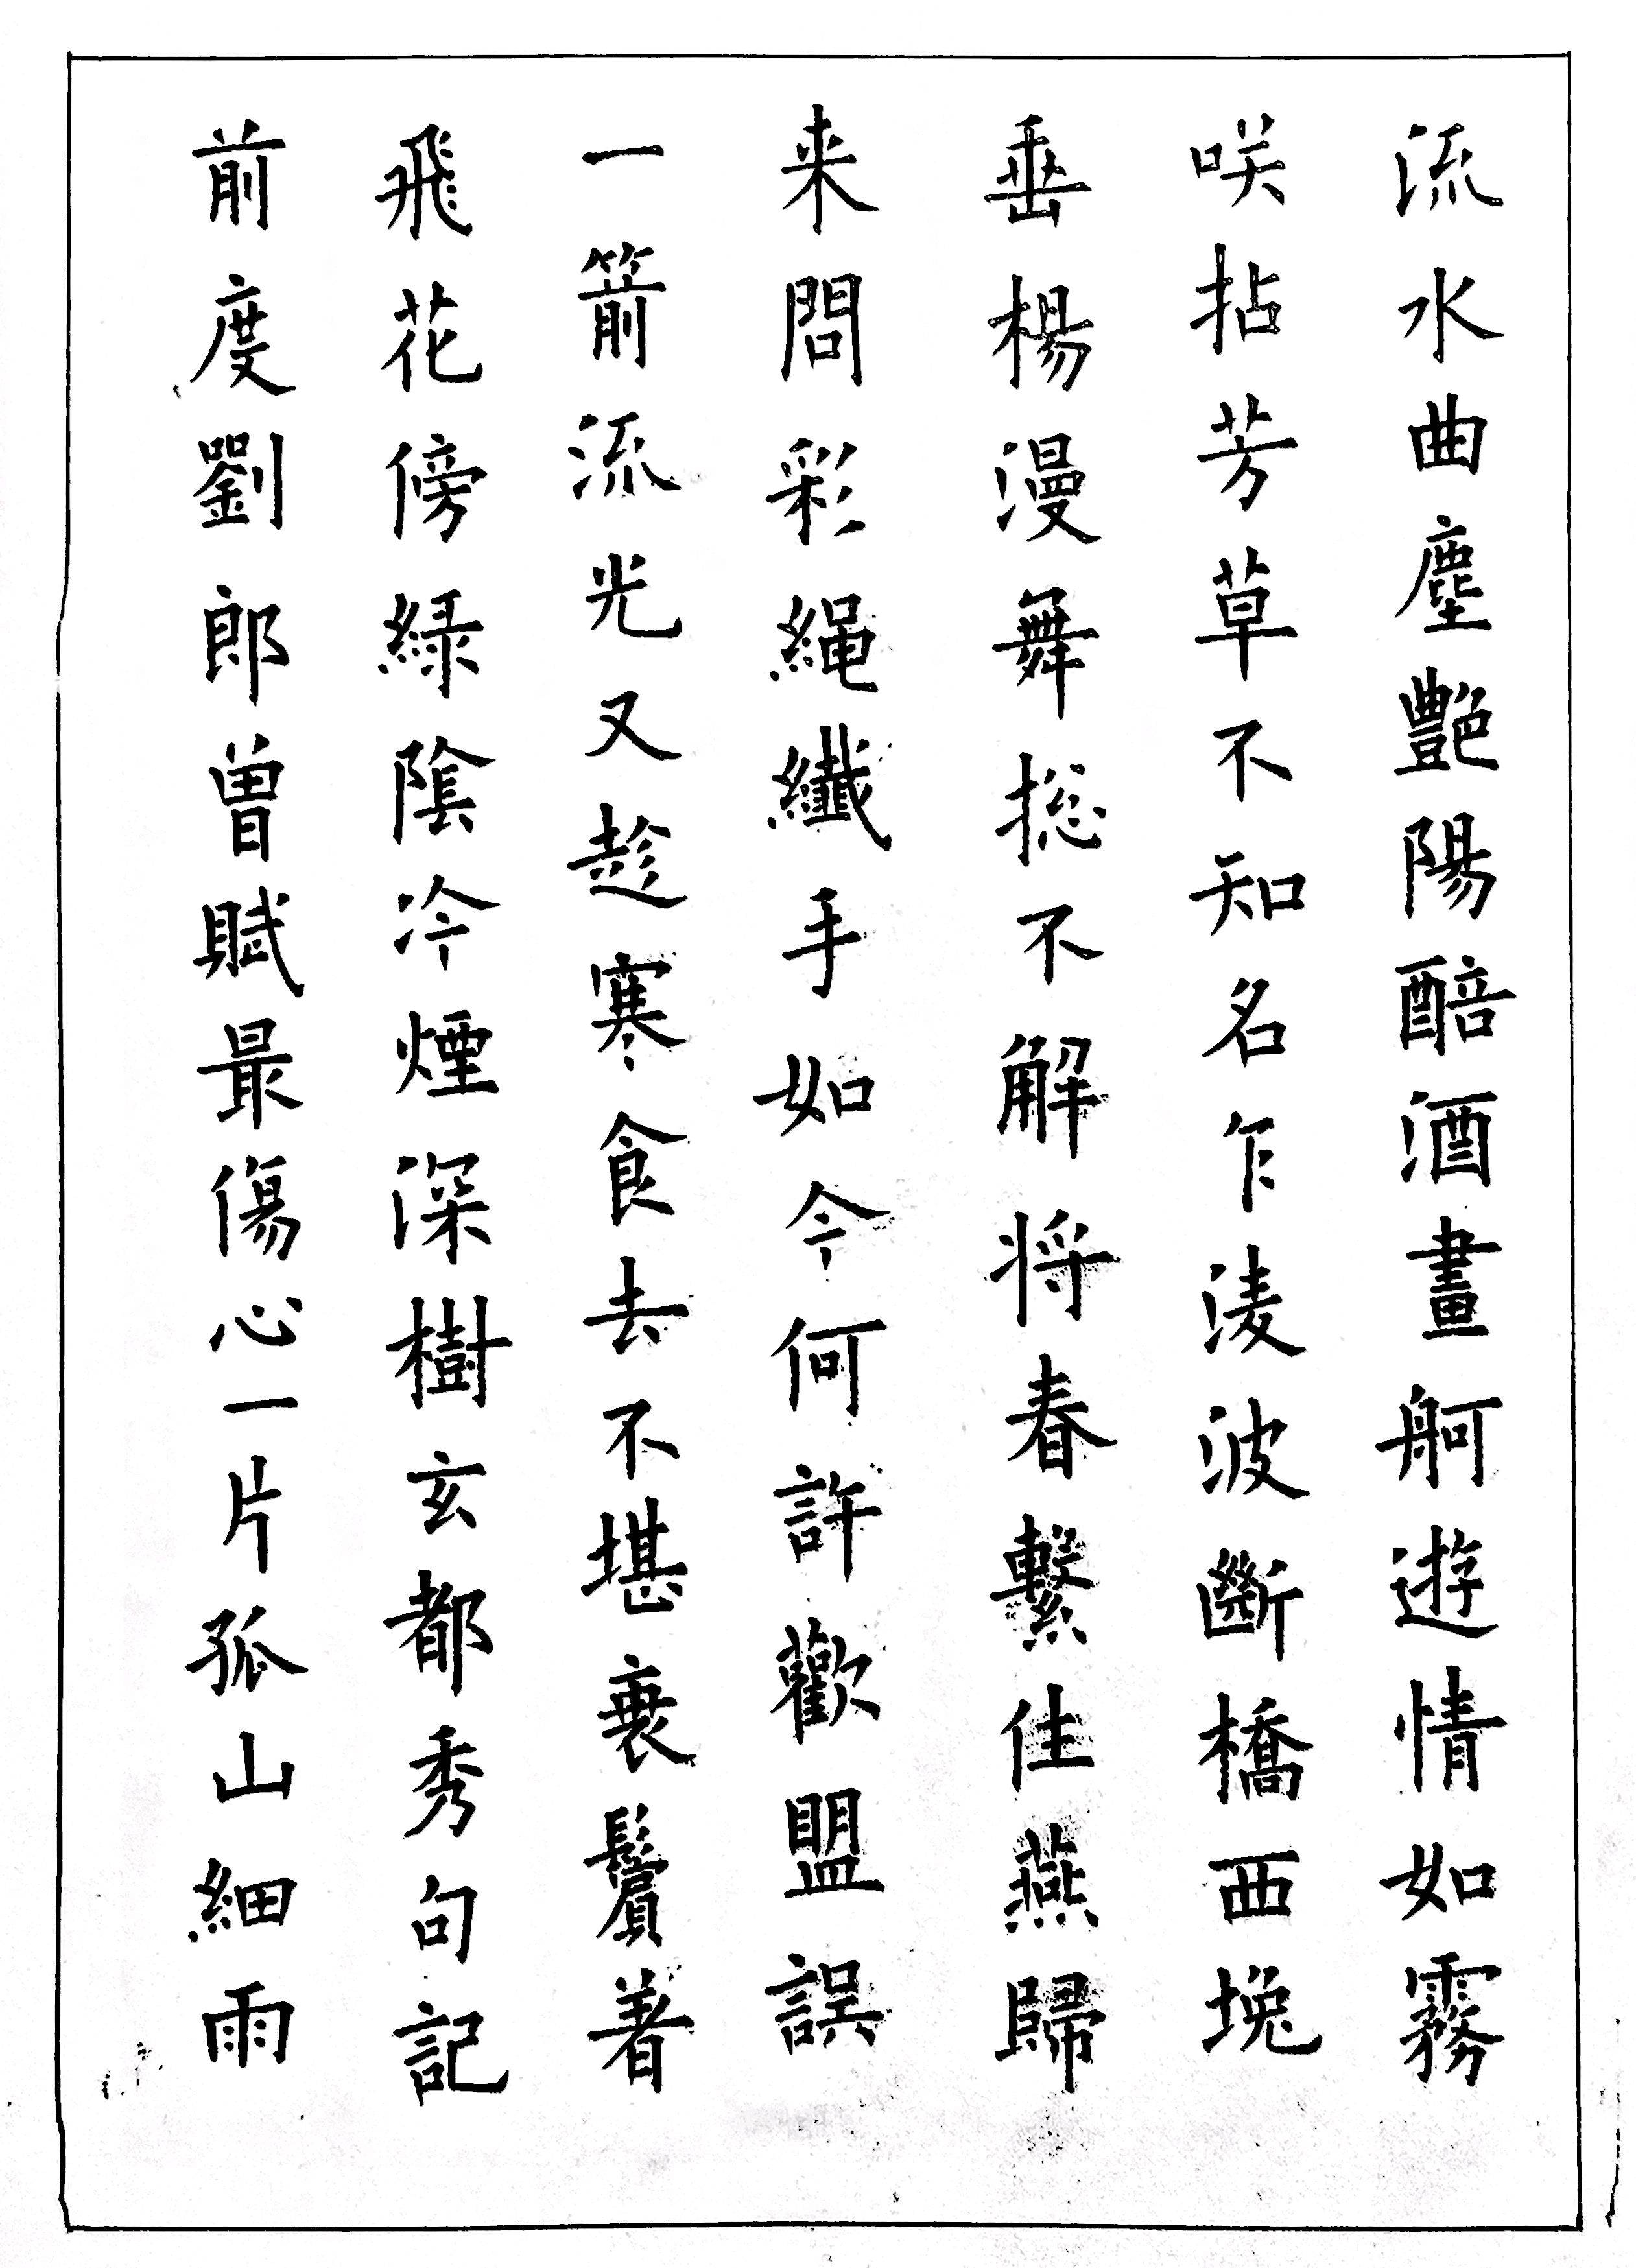 流水曲塵艷陽醅酒畫舸遊情如霧
咲拈芳草不知名乍淩波斷橋西堍
垂楊漫舞総不解将春繫住燕歸
来問彩繩纖手如今何許歡盟誤
一箭流光又趁寒食去不堪衰鬢着
飛花傍緑陰冷煙深樹玄都秀句記
前度劉郎曽賦最傷心一片孤山細雨